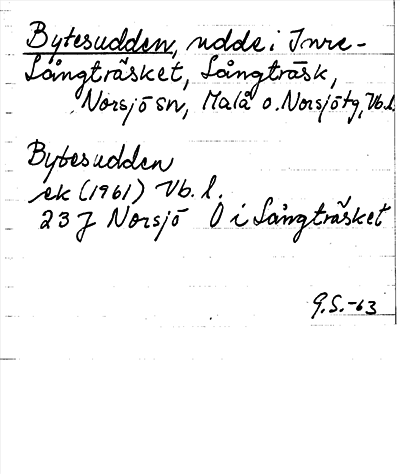 Bytesudden, udde i Inre-
Långträsket, Långträsk,
Norsjö sn, Malå o. Norsjö tg, Vb.l.
Bytesudden
ek (1961) Vb. l.
23 J Norsjö Ö i Långträsket
G.S.-63